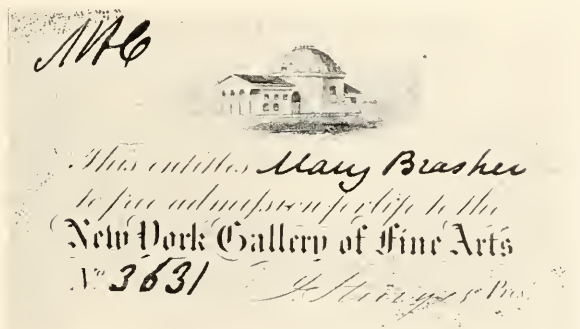 This entitles Mary Brasher
to free admission for life to the
New York Gallery of Fine Arts
No 3631
Pres.